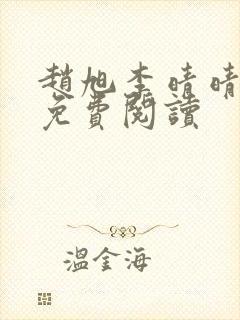 趙旭李晴晴
免費閱讀
溫金海